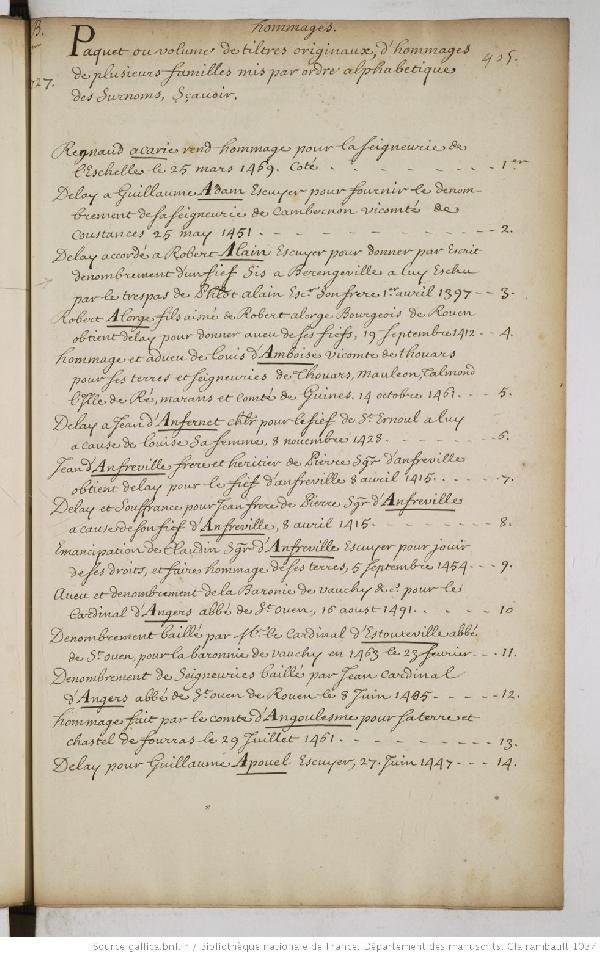 hommages.
B.
405.
727.
Paquet ou volume de tiltres originaux, d'hommages
de plusieurs familles mis par ordre alphabetique
des surnoms, Sçavoir.
Regnaud acarie rend hommage pour la seigneurie de
l'Eschelle le 25 mars 1469. Coté . . . . . 1er
Delay a Guillaume Adam Escuyer pour fournir le denom-
brement de sa seigneurie de Cambernon vicomté de
Coustances 25 may 1451 - - - - - 2.
Delay accordé a Robert Alain Escuyer pour donner par Escrit
denombrement d'un fief sis a Berengeville a luy Escheu
par le trespas de Philot alain Escr. son frere 1er avril 1397 - - 3.
Robert Alorge fils aisné de Robert alorge Bourgeois de Rouen
obtient delay pour donner aveu de ses fiefs, 19 septembre 1412 - - 4.
hommage et adveu de Louis d'Amboise vicomte de thouars
pour ses terres et seigneuries de Thouars, mauleon, Talmond
l'Isle de Ré, marans et comté de Guines. 14 octobre 1461 - - 5.
Delay a Jean d'Anfernet chlr pour le fief de St. Ernoul a luy
a cause de Louise sa femme, 8 novembre 1428 - - - - - 6.
Jean d'Anfreville frere et heritier de Pierre Sgr. d'anfreville
obtient delay pour le fief d'anfreville 8 avril 1415. - - - - 7.
Delay et souffrance pour Jean frere de Pierre Sgr. d'Anfreville
a cause de son fief d'Anfreville, 8 avril 1415 - - - - - 8.
Emancipation de Sgr. d'Anfreville Escuyer pour jouir
de ses droits, et faire hommage de ses terres, 5 septembre 1454 - - 9.
Aveu et denombrement de la Baronie de vauchy &c. pour le
Cardinal d'Angers abbé de St. ouen, 16 aoust 1491. . . . . 10
Denombrement baillé par Mr. le Cardinal d'Estouteville abbé
de St. ouen, pour la baronnie de vauchy en 1463 le 23 fevrier - - 11.
Denombrement de seigneuries baillé par Jean Cardinal
d'Angers abbé de St. ouen de Rouen le 8 Juin 1485 - - - - 12.
hommage fait par le comte d'Angoulesme pour sa terre et
chastel de fourras le 29 Juillet 1461 - - - - - - 13.
Delay pour Guillaume Apouel Escuyer, 27. Juin 1447 - - - 14.
Source gallica.bnf.fr / Bibliothèque nationale de France. Département des manuscrits. Clairambault 1037